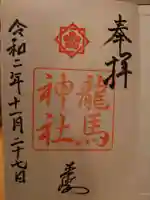 奉拝
龍馬
神社
令和二年十一月二十七日